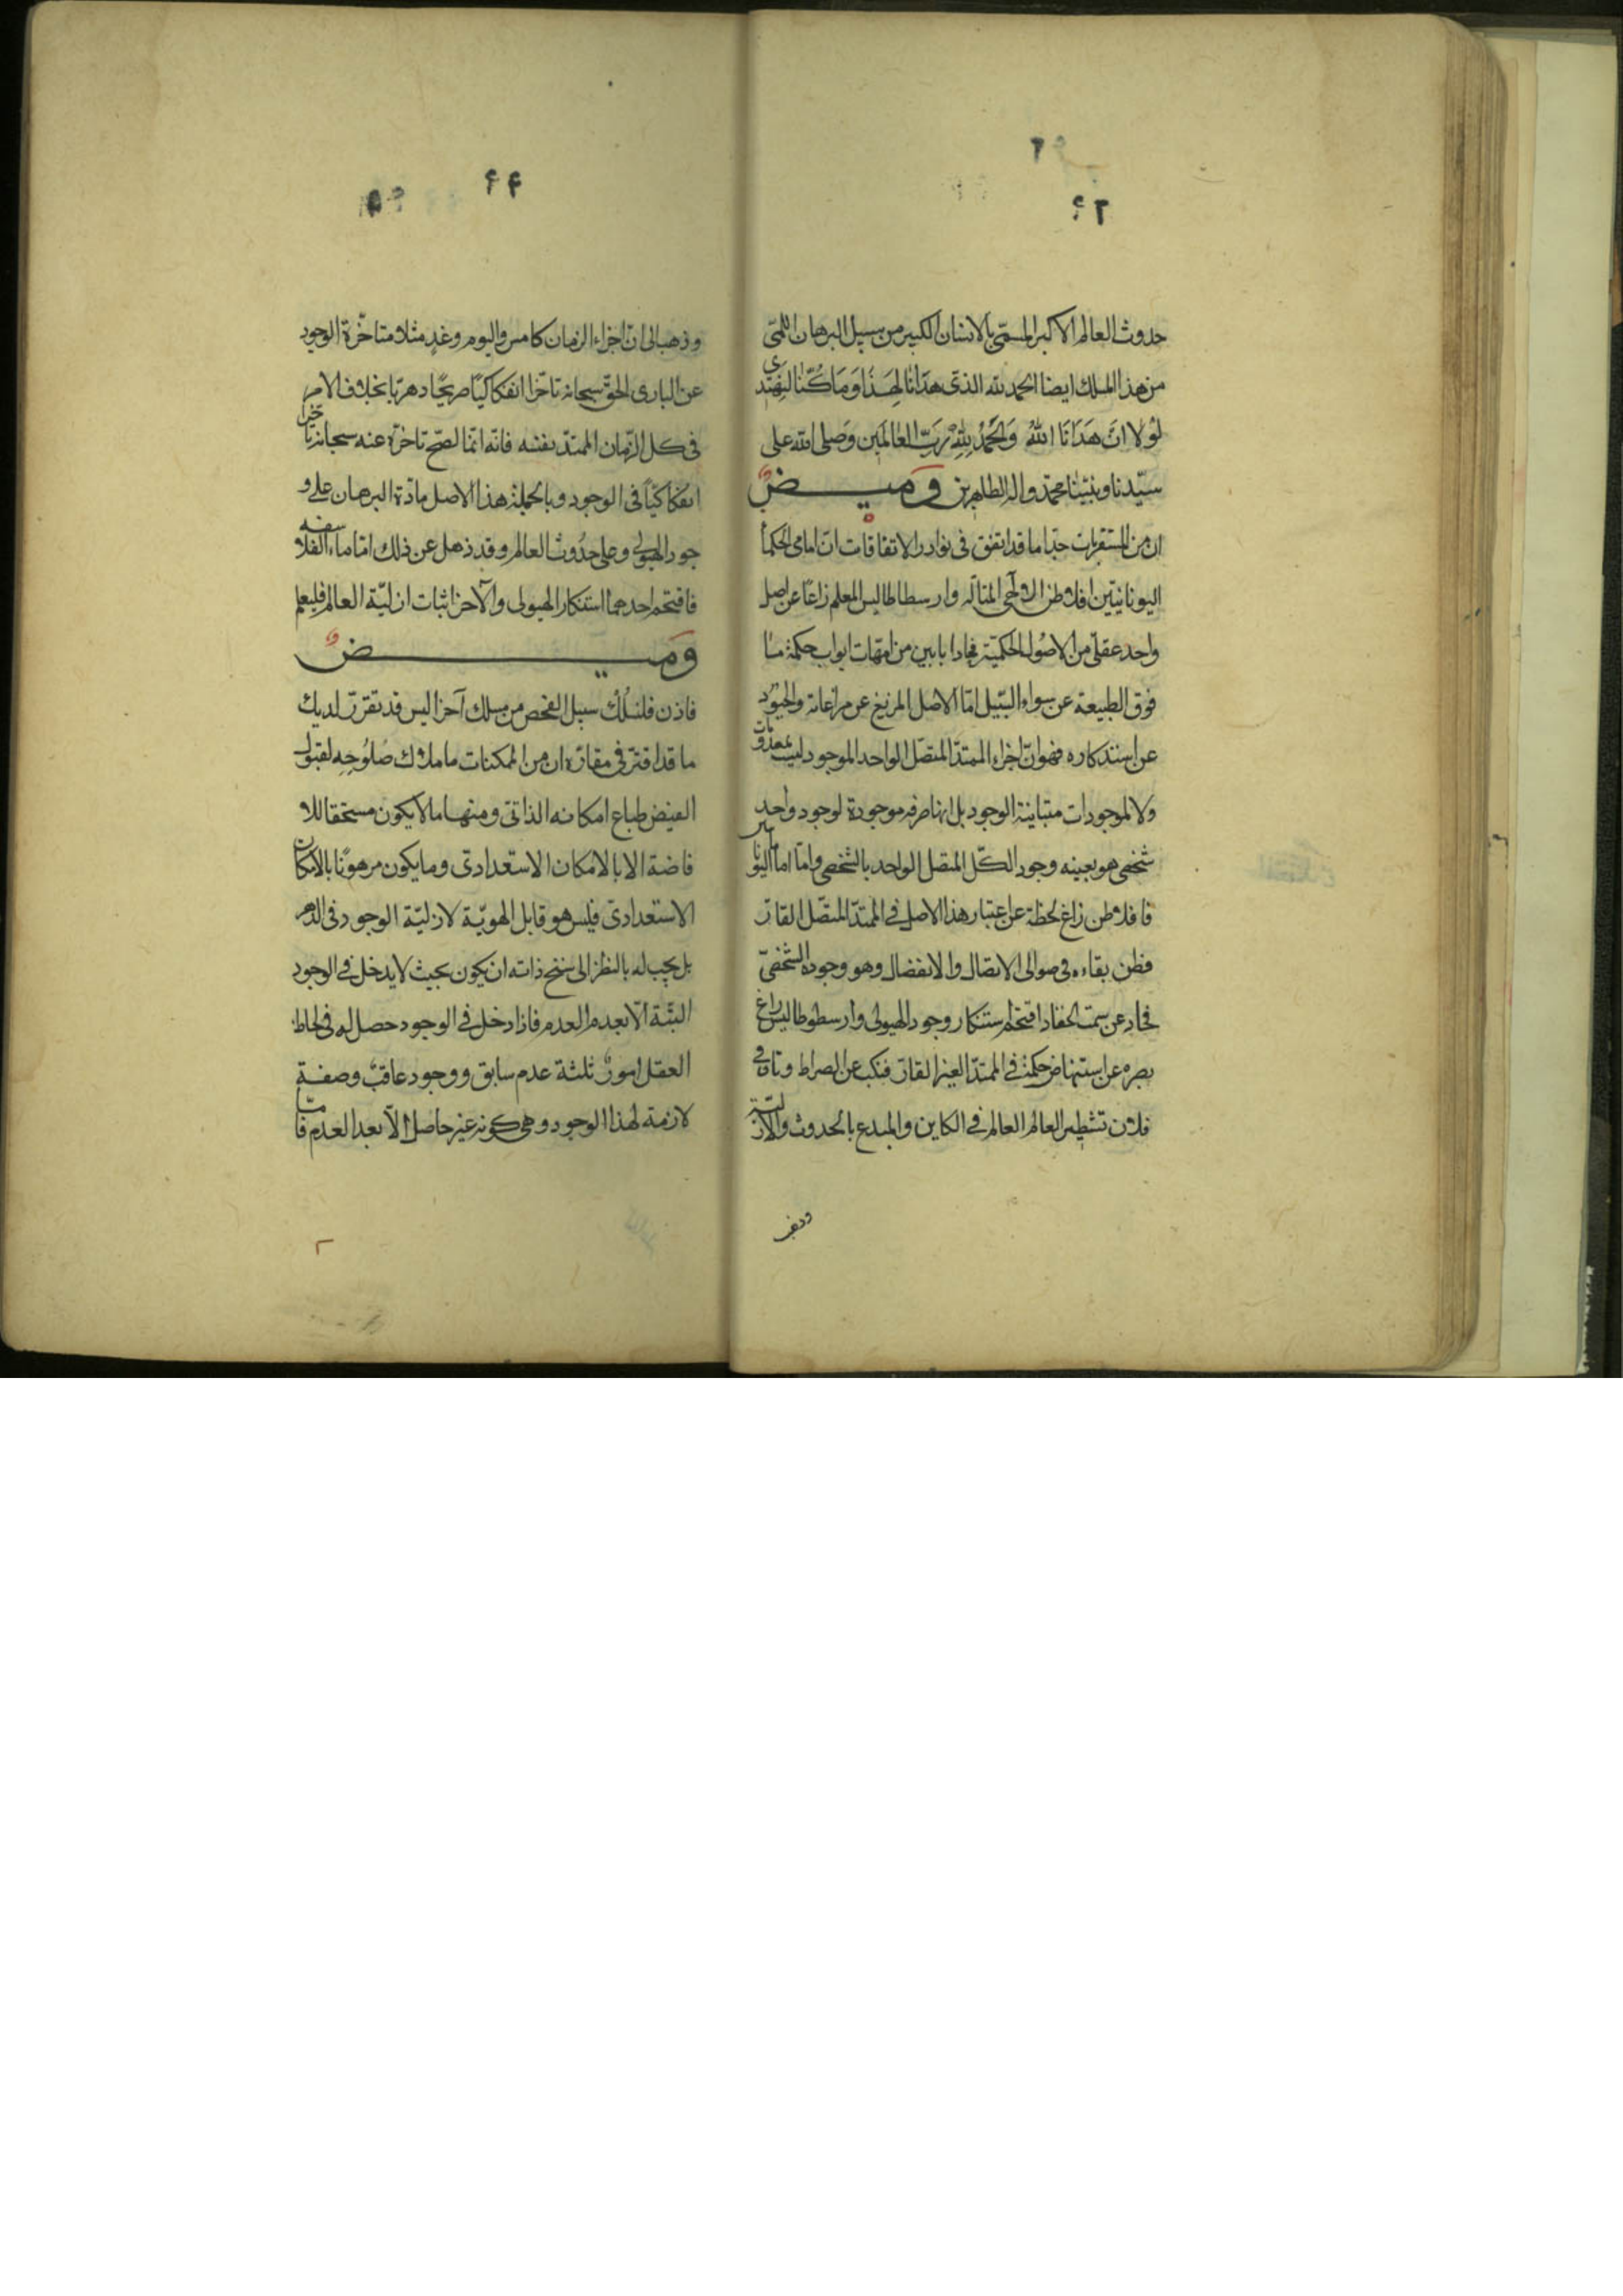 ٩٦
٩٢
حدوث العالم الاكبر المسمّى بالانسان الكبير من سبيل البرهان اللمّى
من هذا المسلك ايضا الحمد لله الذى هدانا لهذا وما كنّا لنهتدى
لولا ان هدانا الله والحمد لله رب العالمين وصلى الله على
سيّدنا ونبيّنا محمّد واله الطاهرين وميض
ان من المستغربات جدّا ما قد اتفق فى نوادر الاتفاقات انّ امامى الحكمأ
اليونانيّين افلاطن الالٓهى المتالّه وارسطاطاليس المعلم زاغا عن اصل
واحد عقلّى من الاصُول الحكميّة فحادا بابين من امّهات ابواب حكمة ما
فوق الطبيعة عن سواء السّبيل امّا الاصل المزيغ عن مراعاته والحيود
عن استذكاره فهو انّ اجزاء الممتدّ المتصّل الواحد الموجود ليست بمعدومات
ولا لموجودات متباينة الوجود بل انها صرفه موجودة لوجود واحد
شخصى هو بعينه وجود الكّل المتصل الواحد بالشخصى وامّا اما اليونانيين
فافلاطن زاغ لحظة عن اعتبار هذا الاصل فى الممتدّ المتصّل القارّ
فظن بقاءه فى حوالى الاتصال والانفصال وهو وجوده الشخصىّ
فحاد عن سمت الحق اذ اقتحم استنكار وجود الهيولى وارسطوطاليس زاغ
بصره عن استنهاض حكمة فى الممتدّ الغير القارّ فنكب عن الصراط وتاه فى
فلان تشطير العالمُ العالم فى الكاين والمبدع بالحدوث والازليّة
وذهب
٤٤
٩٥
وذهب الى انّ اجزاء الزمان كامس واليوم وغدٍ مثلا متاخّرة الوجود
عن البارى الحقّ سبحانه تاخّرا انفكاكيّا صريحًا دهريّا بخلاف الامر
فى كل الزّمان الممتدّ بنفسه فانّه انّما لصّح تاخرّه عنه سبحانه تاخّرا
انفكاكيّاً فى الوجود وبالجملة هذا الاصل مادّة البرهان على و
جود الهيولى وعلى حدُوث العالم وقد ذهل عن ذلك اماما الفلاسفه
فاقتحم احدهما استنكار الهيولى والآخر اثبات ازليّة العالم فليعلم
وميض
فاذن فلنسلُك سبيل الفحص من مسلك آخر اليس قد تقرّر لديك
ما قد اقترّ فى مقارّه ان من الممكنات ما ملاك صُلوُحِه لقبول
الفيض طباع امكانه الذاتى ومنها ما لا يكون مستحقا للا
فاضة الا بالامكان الاستعدادى وما يكون مرهونًا بالامكان
الاستعدادى فليس هو قابل الهويّة لازليّة الوجود فى الدهر
بل يجب له بالنظر الى سنخ ذاته ان يكون بحيث لا يدخل فى الوجود
البتّة الّا بعدم العدم فاذا دخل فى الوجود حصل له فى لحاظ
العقل امورٌ ثلثة عدم سابق ووجود عاقبٌ وصفة
لازمة لهذا الوجود وهى كونه غير حاصل الّا بعد العدم فاما